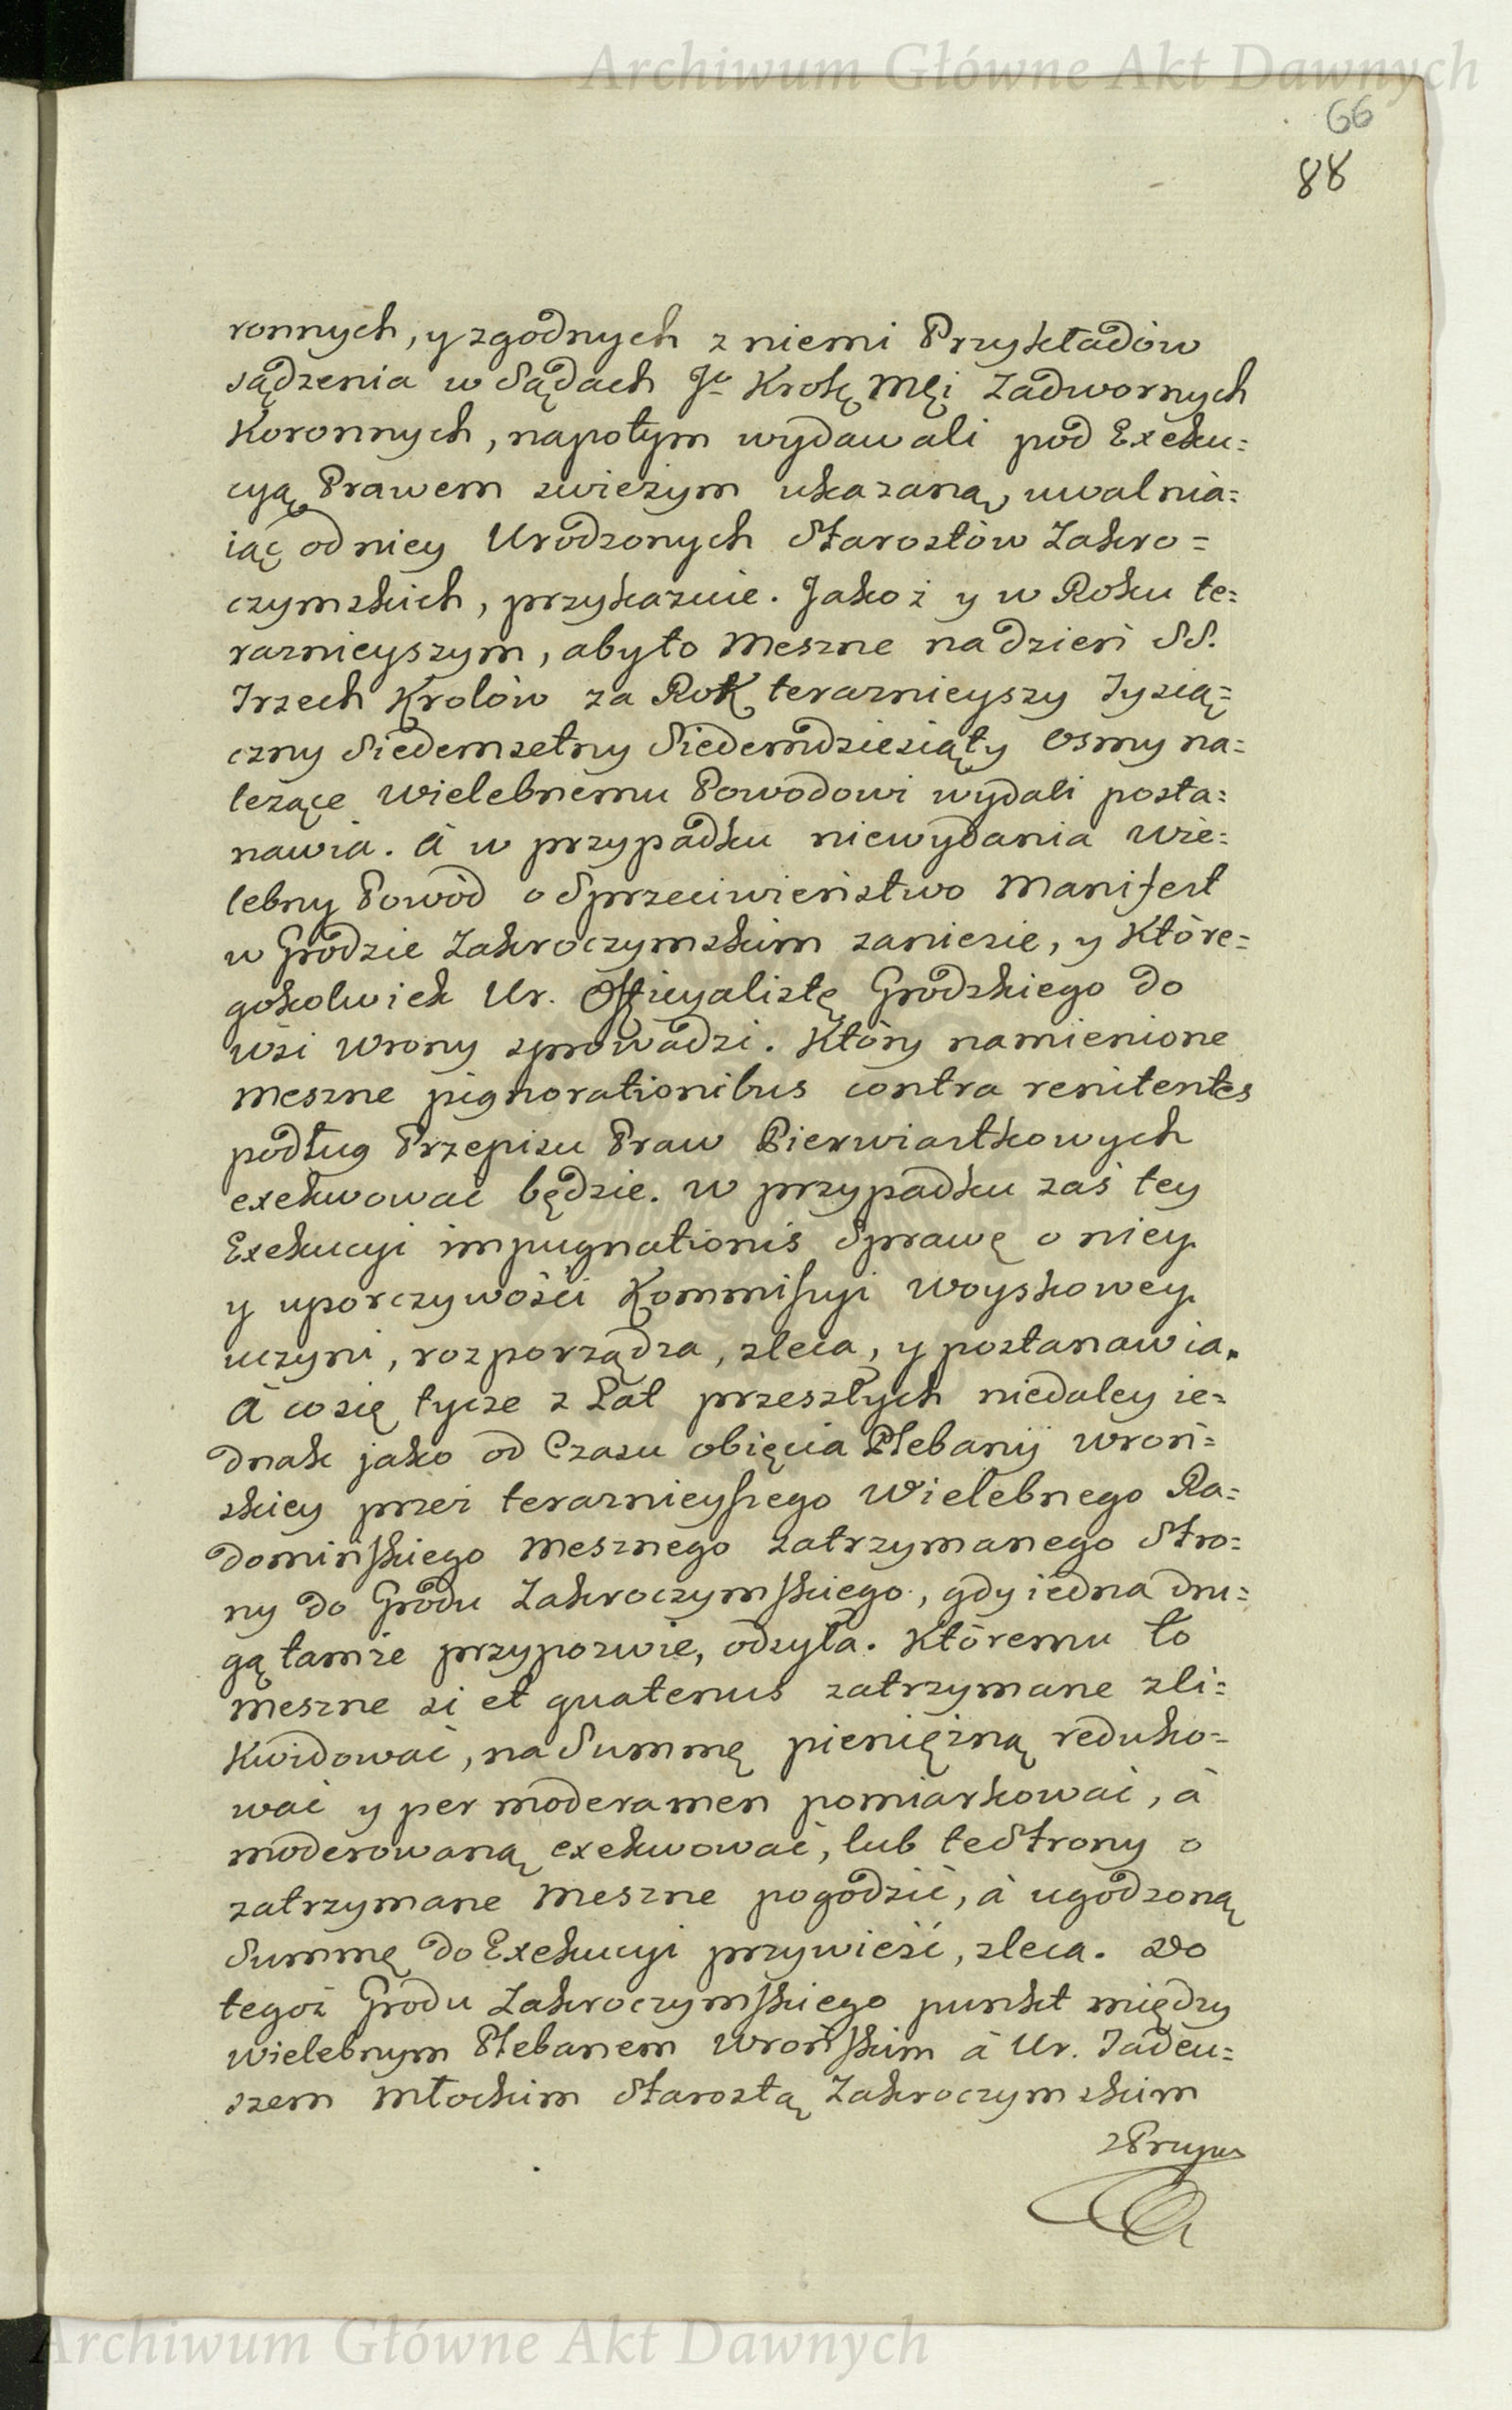 Archiwum Główne Akt Dawnych
66
88
ronnych, y zgodnych z niemi Przykładów
sądzenia w Sądach Jo Krolę Mći Zadwornych
Koronnych, napotym wydawali pod Exeku=
cyą Prawem swieżym ukazaną, uwalnia=
iąc od niey Urodzonych Starostów Zakro=
czymskich, przykazuie. Jakoż y w Roku te=
raznieyszym, aby to Meszne na dzień SS.
Trzech Krolów za Rok teraznieyszy Tysią=
czny Siedemsetny Siedemdziesiąty Osmy na=
leżące Wielebnemu Powodowi wydali posta=
nawia. A w przypadku niewydania Wie=
lebny Powód o Sprzeciwieństwo Manifest
w Grodzie Zakroczymskim zaniesie, y Które=
gokolwiek Ur. Officyalistę Grodzkiego do
wsi Wrony sprowadzi. Który namienione
meszne pignorationibus contra renitentes
podług Przepisu Praw Pierwiastkowych
exekwować będzie. W przypadku zaś tey
Exekucyi impugnationis Sprawę o niey
y uporczywości Kommissyi Woyskowey
uczyni, rozporządza, zleca, y postanawia.
A co się tycze z Lat przeszłych niedaley ie=
dnak jako od Czasu obięcia Plebanij Wroń=
skiey przez teraznieyszego Wielebnego Ra=
domińskiego Mesznego zatrzymanego Stro=
ny do Grodu Zakroczymskiego, gdy iedna dru=
gą tamże przypozwie, odsyła. Któremu to
meszne si et quatenus zatrzymane zli=
kwidować, na Summę pieniężną reduko=
wać y per moderamen pomiarkować, à
moderowaną exekwować, lub te Strony o
zatrzymane Meszne pogodzić, à ugodzoną
Summę do Exekucyi przywieść, zleca. Do
tegoż Grodu Zakroczymskiego punkt między
wielebnym Plebanem Wrońskim à Ur. Tadeu=
szem Młockim Starostą Zakroczymskim
Archiwum Główne Akt Dawnych